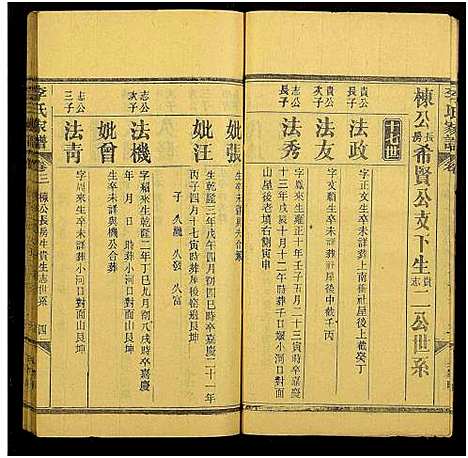 李氏家譜
棟公長房希賢公支下生貴志二公世系
十七世
貴公長子
法政
字正文生卒未詳葬上南衝社屋後上截癸丁
貴公次子
法友
字 生卒未詳葬社屋後中截壬丙
志公長子
法秀
字鳳來生雍正十年壬子五月二十三寅時卒嘉慶
十三年戊辰十月十二午時葬
山屋後老墳右側寅申
妣張
生卒未詳
合葬
妣汪
生乾隆三年戊午四月初四戌時卒嘉慶二十一年
丙子四月十七寅時葬屋後窑邉艮坤
子 久融 久發 久富
志公次子
法機
字顯來生乾隆二年丁巳九月朔八戌時卒嘉慶
年 月 日 時葬小河口對面山艮坤
妣曾
生卒未詳與機公合葬
志公三子
法青
字周來生卒未詳葬小河口對面山艮坤
李氏家譜
卷三
棟公長房生貴生志世系
四